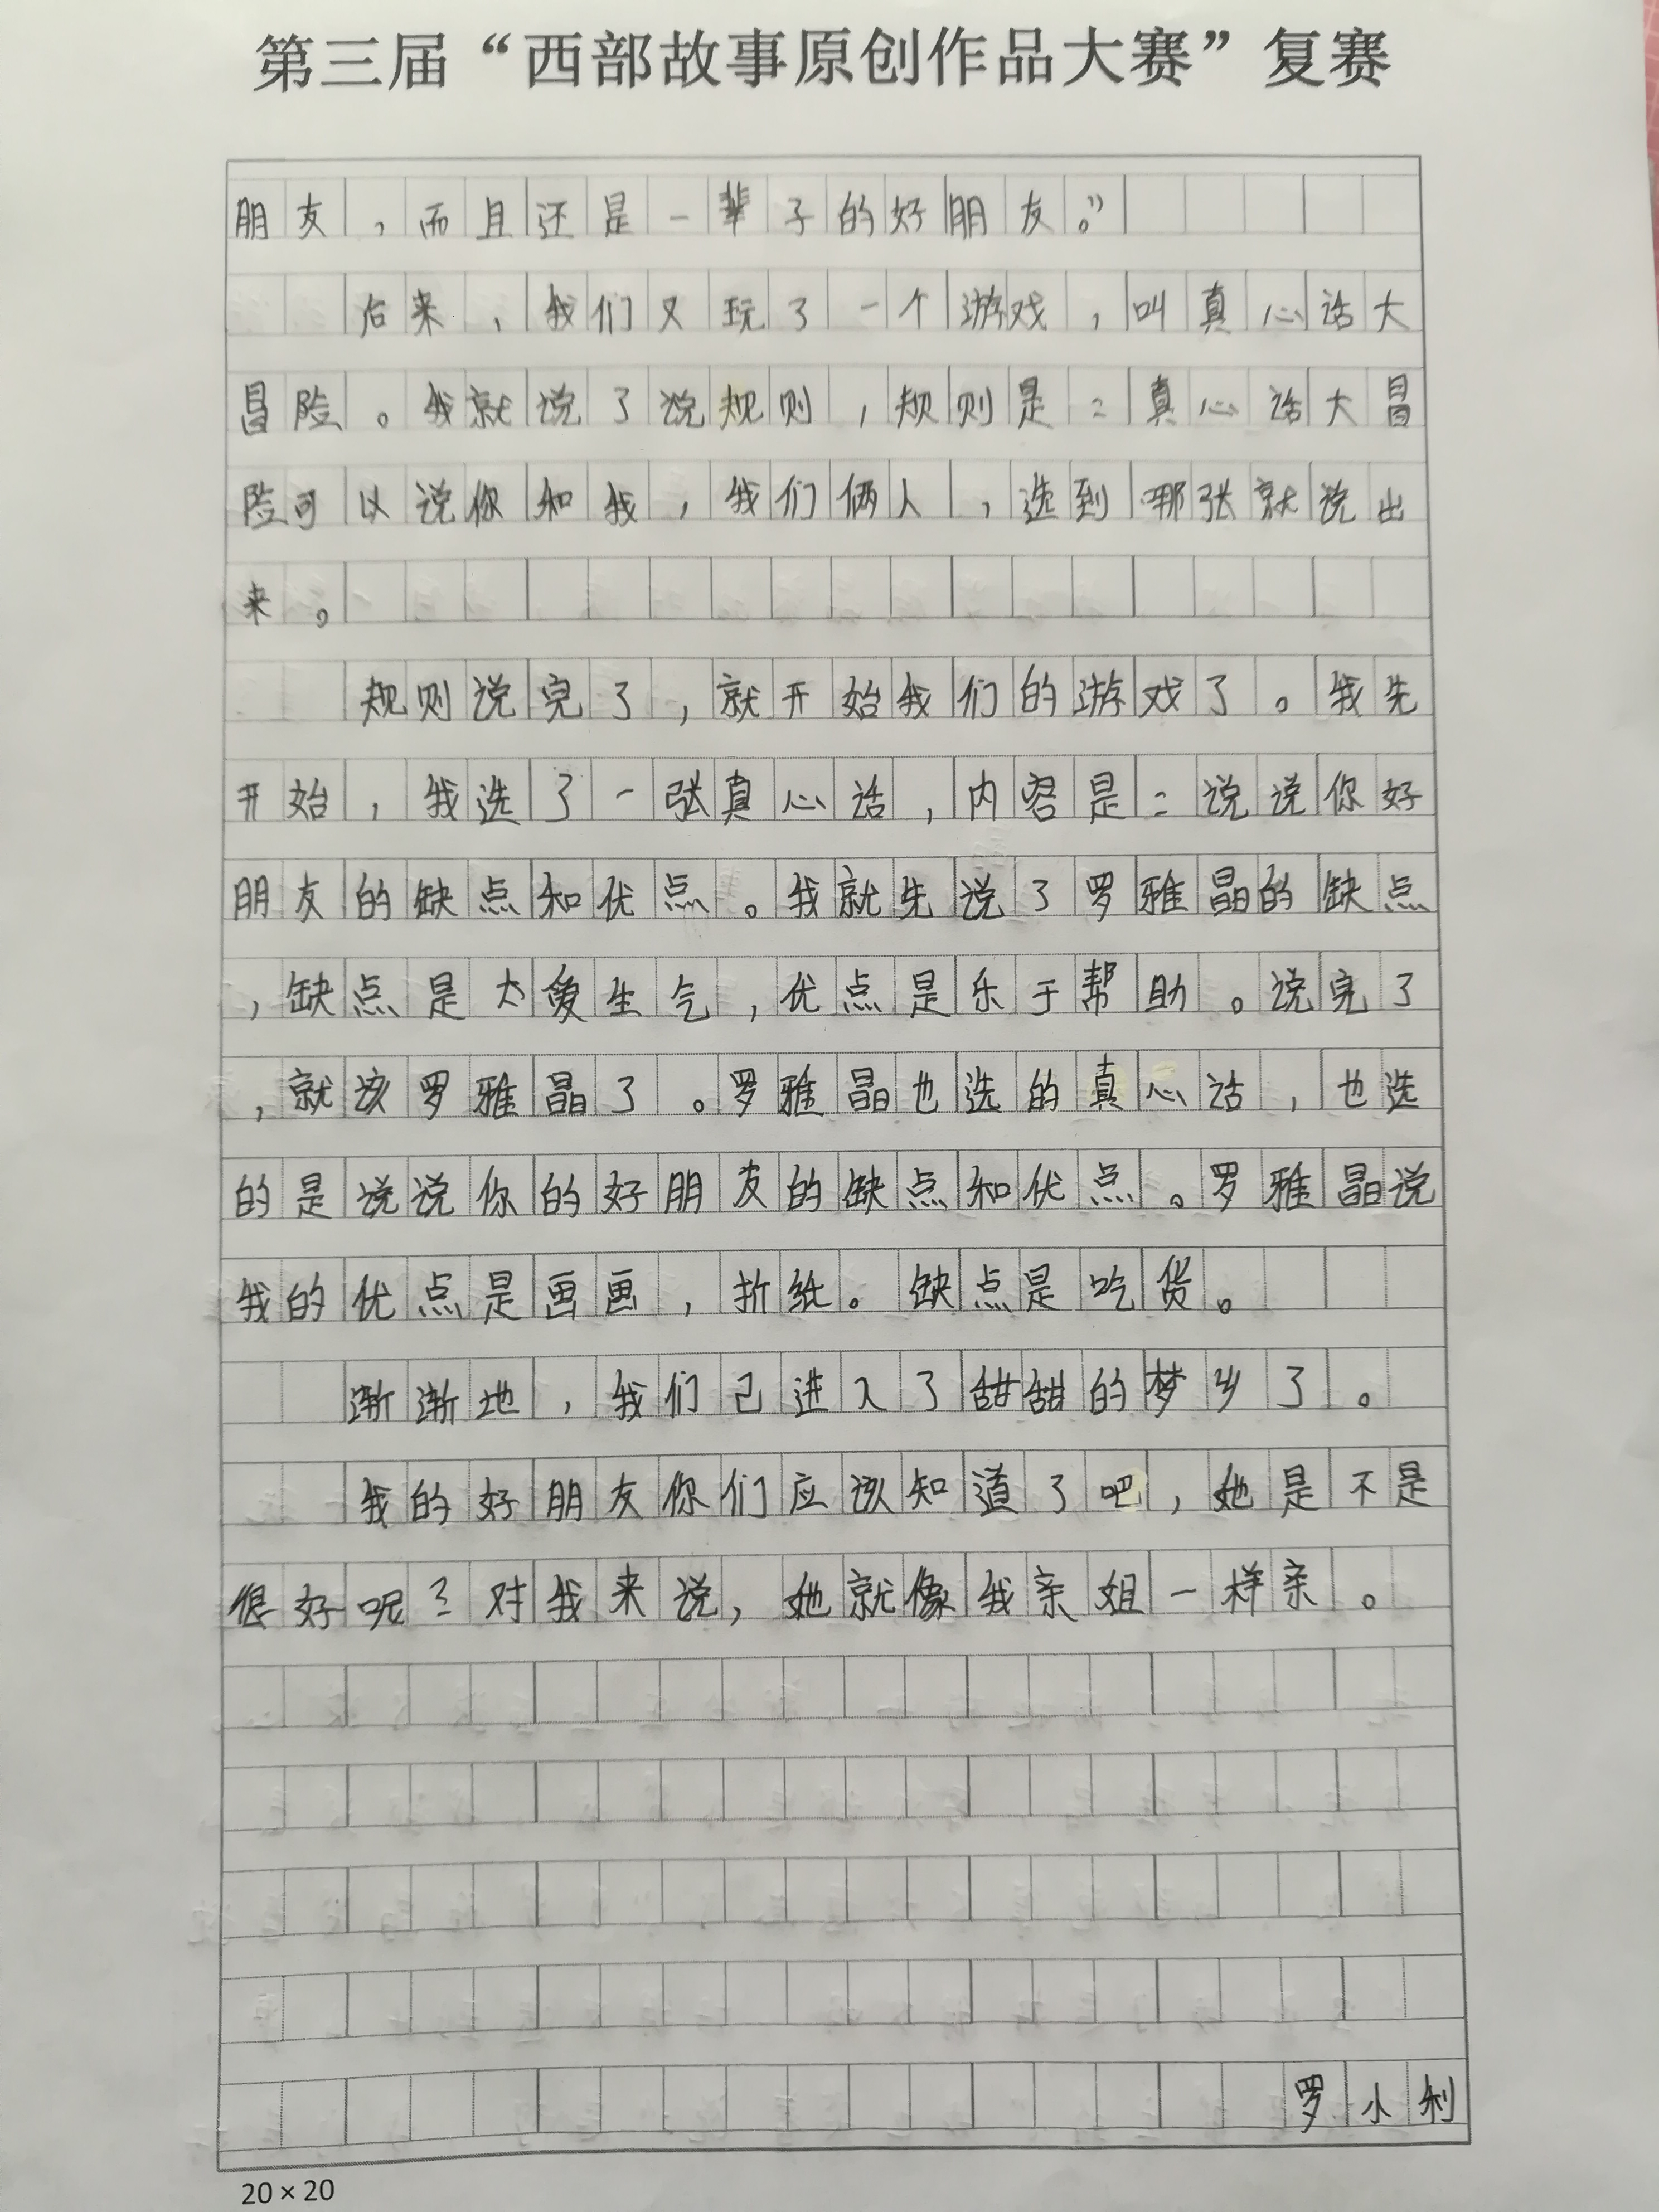 第三届“西部故事原创作品大赛”复赛
朋友，而且还是一辈子的好朋友。”
后来，我们又玩了一个游戏，叫真心话大
冒险。我就说了说规则，规则是：真心话大冒
险可以说你和我，我们俩人，选到哪张就说出
来。
规则说完了，就开始我们的游戏了。我先
开始，我选了一张真心话，内容是：说说你好
朋友的缺点和优点。我就先说了罗雅晶的缺点
，缺点是太爱生气，优点是乐于帮助。说完了
，就该罗雅晶了。罗雅晶也选的真心话，也选
的是说说你的好朋友的缺点和优点。罗雅晶说
我的优点是画画，折纸。缺点是吃货。
渐渐地，我们已进入了甜甜的梦乡了。
我的好朋友你们应该知道了吧，她是不是
很好呢？对我来说，她就像我亲姐一样亲。
罗小利
20×20